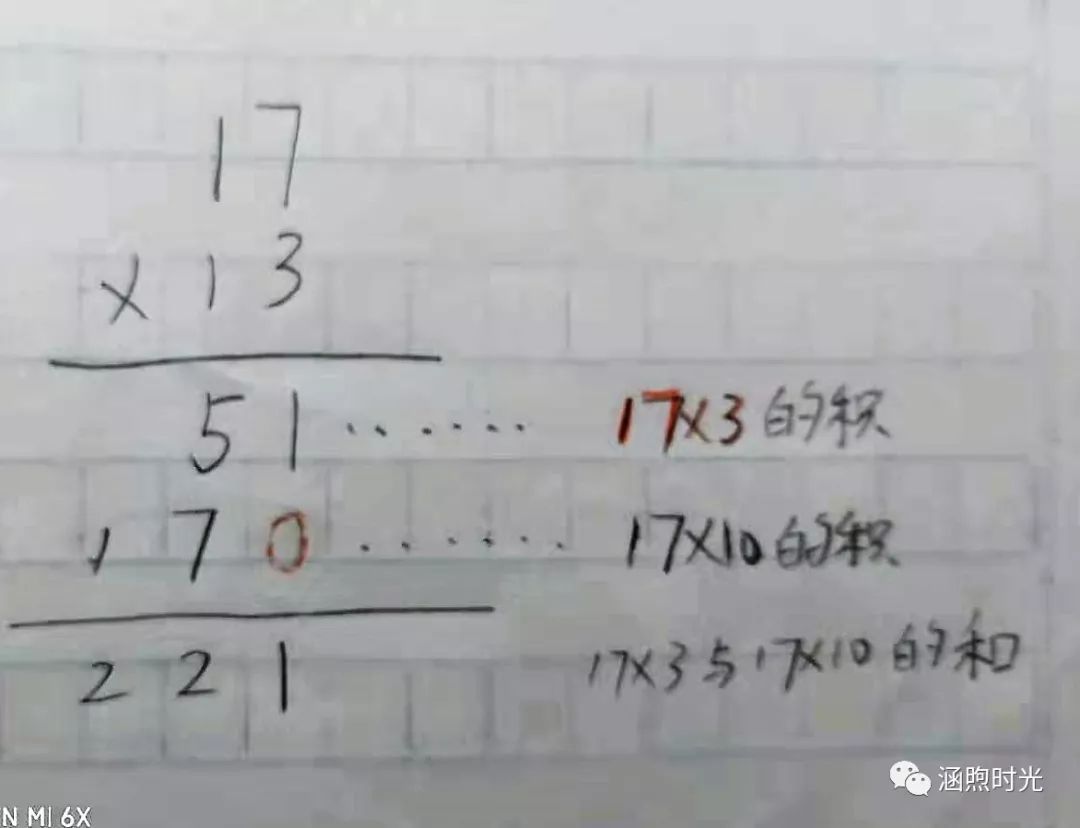 17
×13
51……17×3的积
170……17×10的积
221 17×3与17×10的和
涵煦时光
N MI 6X